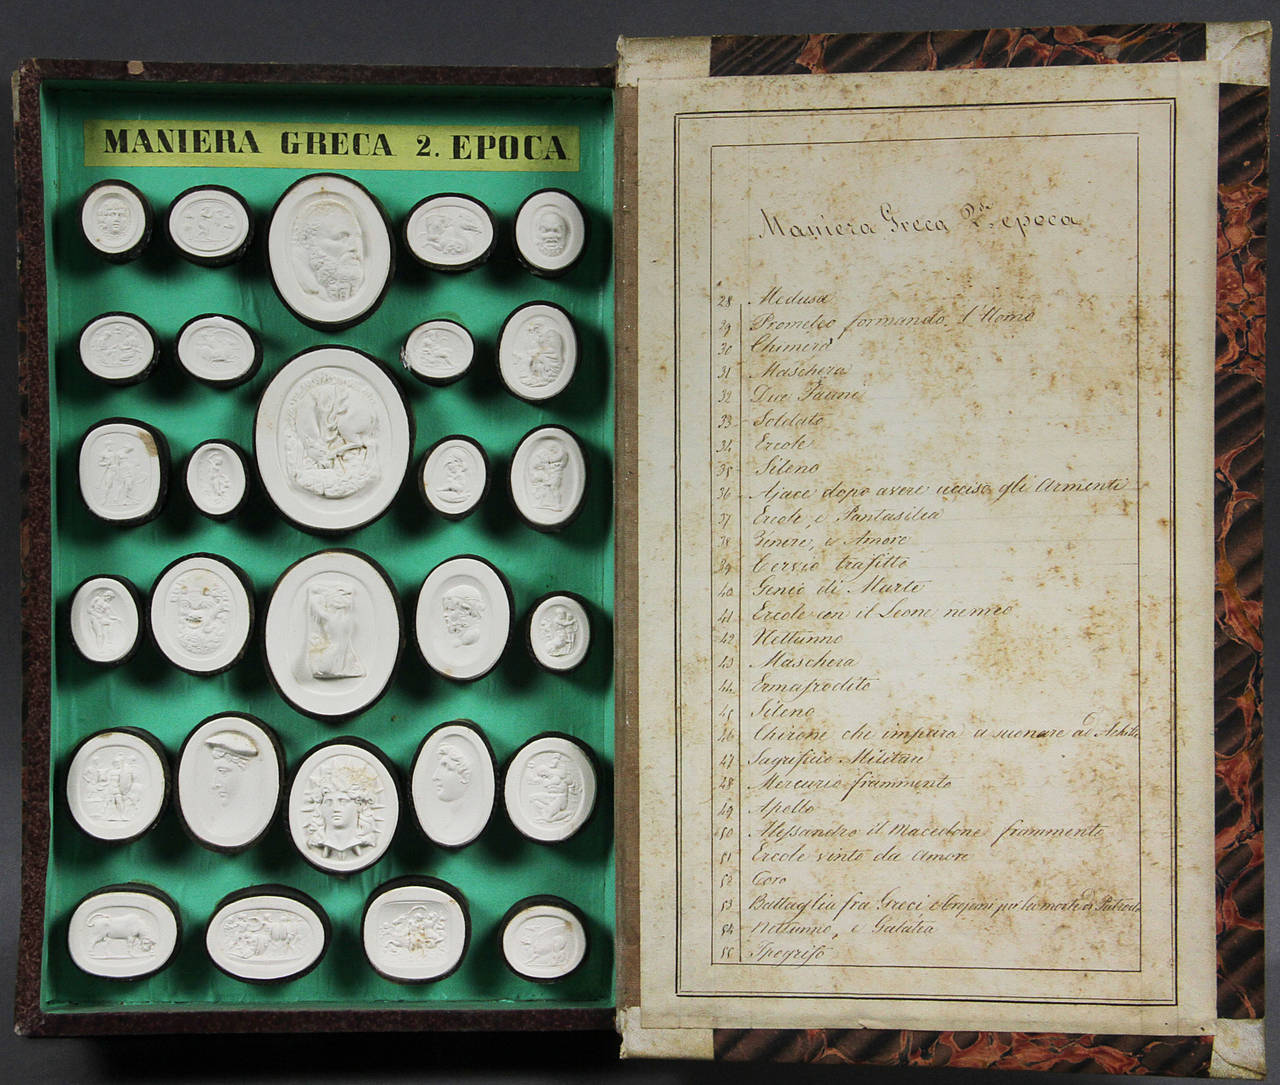 MANIERA GRECA 2. EPOCA
Maniera Greca 2.da epoca
28 Medusa
29 Prometeo formando l'Uomo
30 Chimera
31 Maschera
32 Due Fauni
33 Soldato
34 Ercole
35 Sileno
36 Ajace dopo avere ucciso gli Armenti
37 Ercole, e Pantasilea
38 Venere, e Amore
39 Cervio trafitto
40 Genio di Marte
41 Ercole con il Leone nemeo
42 Nettunno
43 Maschera
44 Ermafrodito
45 Sileno
46 Chirone che impara a suonare ad Achille
47 Sagrificio Militare
48 Mercurio frammento
49 Apollo
50 Alessandro il Macedone frammento
51 Ercole vinto da Amore
52 Toro
53 Battaglia fra Greci e Trojani per la morte di
54 Nettunno, e Galatea
55 Ipogrifo